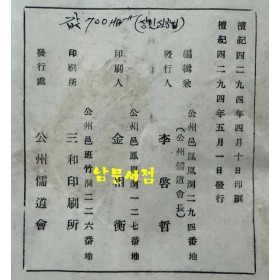 값 700 HW
檀紀四二九四年四月十日印刷
檀紀四二九四年五月一日發行
公州邑鳳凰洞二九四番地
編輯兼
發行人 李啓哲
(公州儒道會長)
公州邑鳳凰洞一二七番地
印刷人 金相衡
公州邑班竹洞二二六番地
印刷所 三和印刷所
發行處 公州儒道會
남문서점